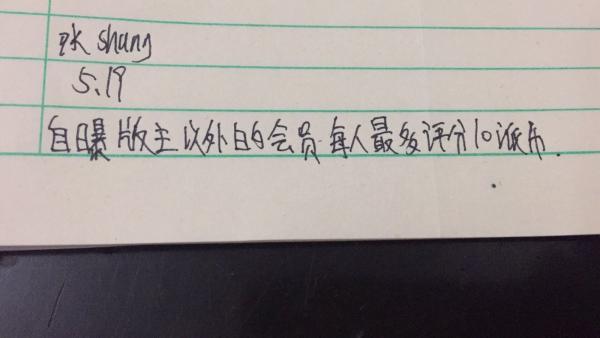 pk shang
5.19
自曝版主以外的会员每人最多评分10派币.